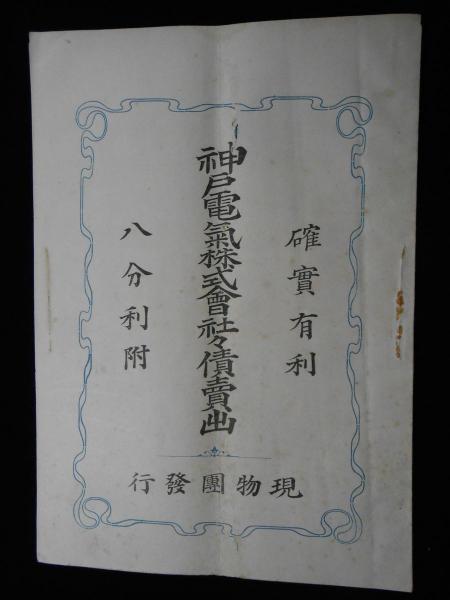 確實有利
神戸電氣株式會社々債賣出
八分利附
現物團發行